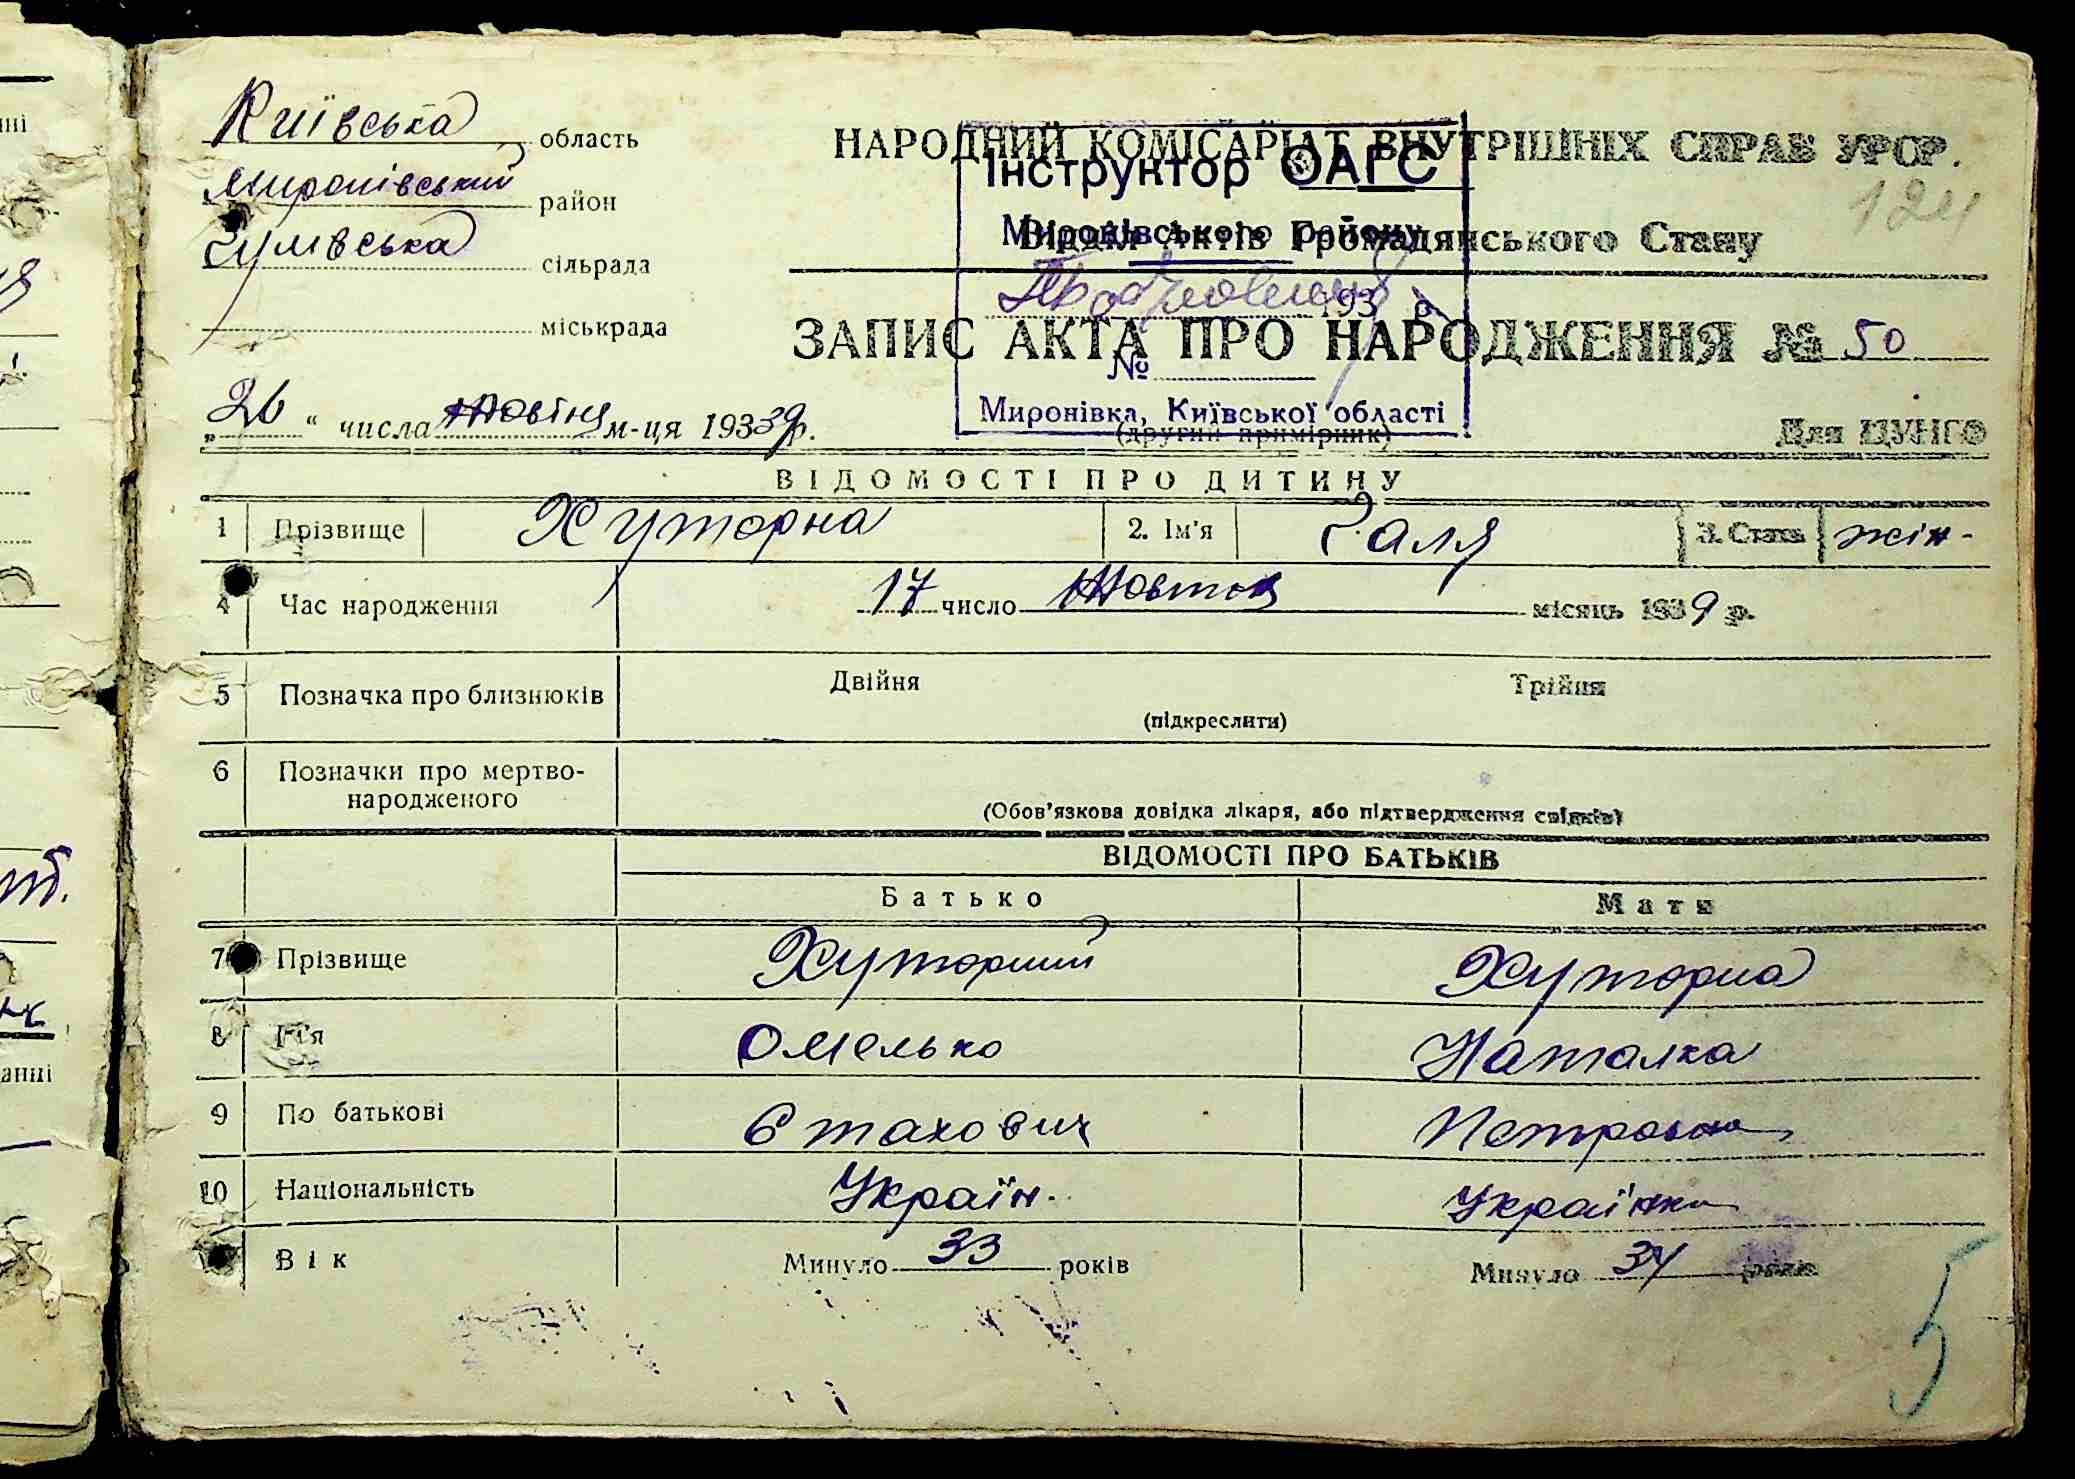 Київська область
Миронівський район
сільрада
міськрада
НАРОДНИЙ КОМІСАРІАТ ВНУТРІШНІХ СПРАВ УРСР.
124
Відділ Актів Громадянського Стану
Інструктор ОАГС
Миронівського району
193 р.
№
Миронівка, Київської області
ЗАПИС АКТА ПРО НАРОДЖЕННЯ № 50
(другий примірник)
„26“ числа жовтня м-ця 1939 р.
Для ЦУНГО
ВІДОМОСТІ ПРО ДИТИНУ
1 Прізвище Хуторна 2. Ім'я Галя 3. Стать жін-
4 Час народження 17 число жовтня місяць 1939 р.
5 Позначка про близнюків Двійня Трійня
(підкреслити)
6 Позначки про мертво-
народженого
(Обов'язкова довідка лікаря, або підтвердження свідків)
ВІДОМОСТІ ПРО БАТЬКІВ
Батько Мати
7 Прізвище Хуторний Хуторна
8 Ім'я Омелько Наталка
9 По батькові Єтахович Петровна
10 Національність Україн. Українка
Вік Минуло 33 років Минуло 34 років
5